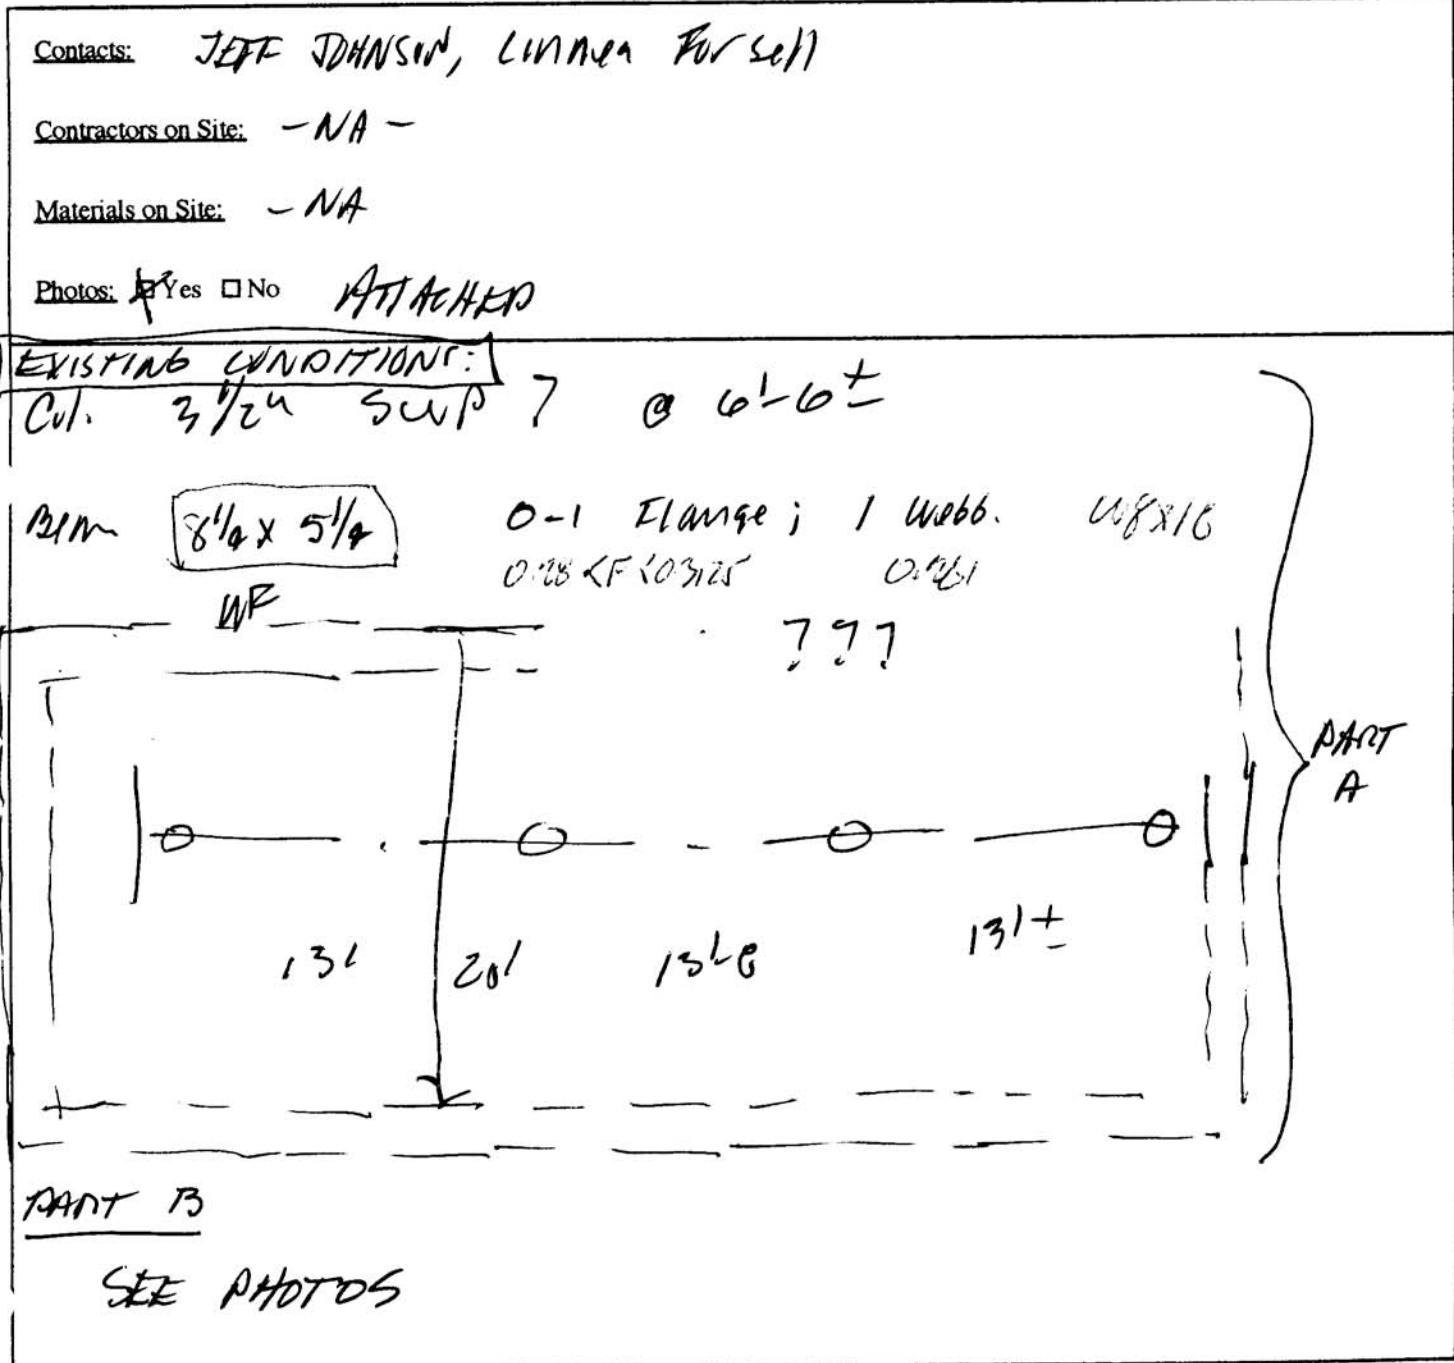 Contacts: JEFF JOHNSON, Linnea Forsell
Contractors on Site: - NA -
Materials on Site: - NA
Photos: Yes No ATTACHED
EXISTING CONDITIONS:
Col. 3 1/2" ? @ 6'-6 ±
Beam 8 1/4 x 5 1/4 0-1 Flange; 1 Webb.
0.28 < F < 0.3125
WF
? ? ?
PART
A
13' 20' 13'-8 13' ±
PART B
SEE PHOTOS